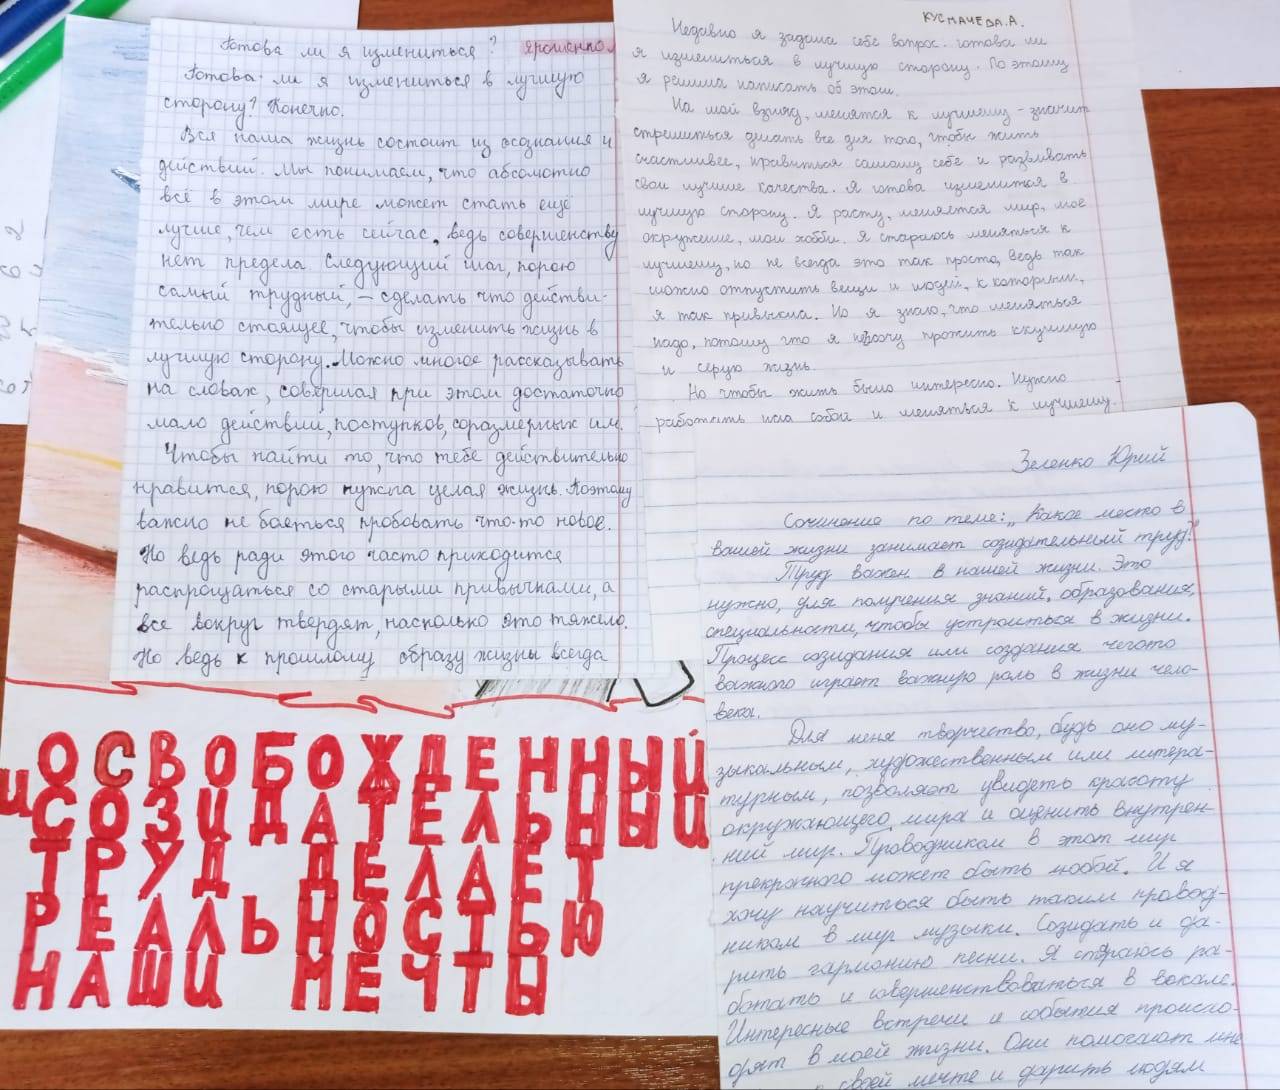 Готова ли я измениться?
Ярошенко
Готова ли я измениться в лучшую
сторону? Конечно.
Вся наша жизнь состоит из осознания и
действий. Мы понимаем, что абсолютно
всё в этом мире может стать ещё
лучше, чем есть сейчас, ведь совершенству
нет предела. Следующий шаг, порою
самый трудный, – сделать что действи-
тельно стоящее, чтобы изменить жизнь в
лучшую сторону. Можно многое рассказывать
на словах, совершая при этом достаточно
мало действий, поступков, соразмерных им.
Чтобы найти то, что тебе действительно
нравится, порою нужна целая жизнь. Поэтому
важно не бояться пробовать что-то новое.
Но ведь ради этого часто приходится
распрощаться со старыми привычками, а
все вокруг твердят, насколько это тяжело.
Но ведь к прошлому образу жизни всегда
КУСМАЧЕВА.А.
Недавно я задала себе вопрос. готова ли
я измениться в лучшую сторону. По этому
я решила написать об этом.
На мой взгляд, менятся к лучшему – значит
стремиться делать все для того, чтобы жить
счастливее, нравиться самому себе и развивать
свои лучшие качества. Я готова изменится в
лучшую сторону. Я расту, меняется мир, моё
окружение, мои хобби. Я стараюсь меняться к
лучшему, но не всегда это так просто, ведь так
сложно отпустить вещи и людей, к которым,
я так привыкла. Но я знаю, что меняться
надо, потому что я не хочу прожить скучную
и серую жизнь.
Но чтобы жить было интересно. Нужно
работать над собой и меняться к лучшему.
Зеленко Юрий
Сочинение по теме: „Какое место в
вашей жизни занимает созидательный труд?"
Труд важен в нашей жизни. Это
нужно, для получения знаний, образования,
специальности, чтобы устроиться в жизни.
Процесс созидания или создания чегото
важного играет важную роль в жизни чело-
века.
Для меня творчество, будь оно му-
зыкальным, художественным или литера-
турным, позволяет увидеть красоту
окружающего мира и оценить внутрен-
ний мир. Проводником в этот мир
прекрасного может быть любой. И я
хочу научиться быть таким провод-
ником в мир музыки. Созидать и да-
рить гармонию песни. Я стараюсь ра-
ботать и совершенствоваться в вокале.
Интересные встречи и события происхо-
дят в моей жизни. Они помогают мне
своей мечте и дарить людям
ОСВОБОЖДЕННЫЙ
И СОЗИДАТЕЛЬНЫЙ
ТРУД ДЕЛАЕТ
РЕАЛЬНОСТЬЮ
НАШИ МЕЧТЫ